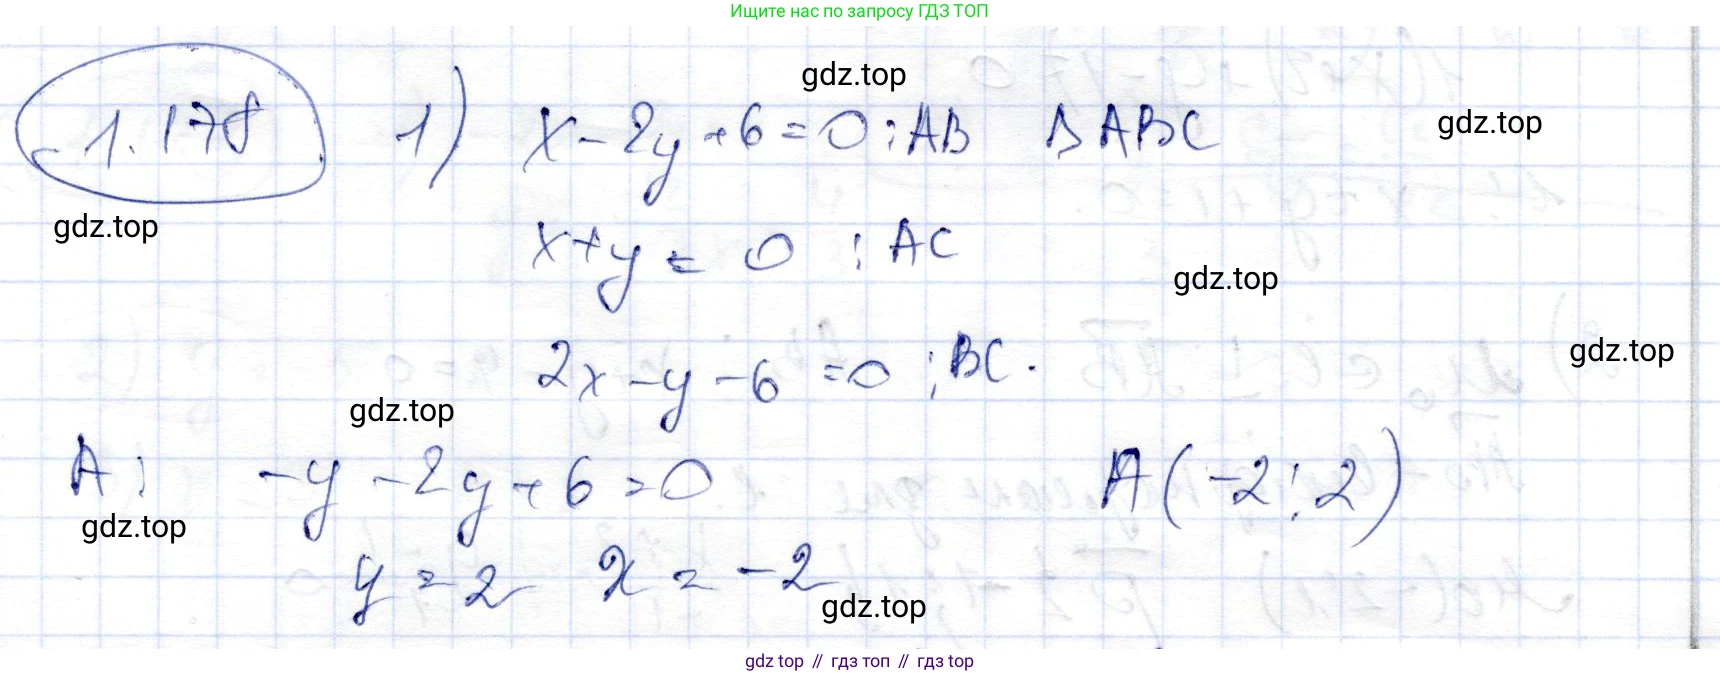 Ищите нас по запросу ГДЗ ТОП
gdz.top
1.178 1) x - 2y + 6 = 0 ; AB Δ ABC
gdz.top
gdz.top
x + y = 0 ; AC
gdz.top
2x - y - 6 = 0 ; BC.
gdz.top
gdz.top
A: -y - 2y + 6 = 0 A(-2; 2)
gdz.top
y = 2 x = -2
gdz.top
gdz top // гдз топ // гдз top